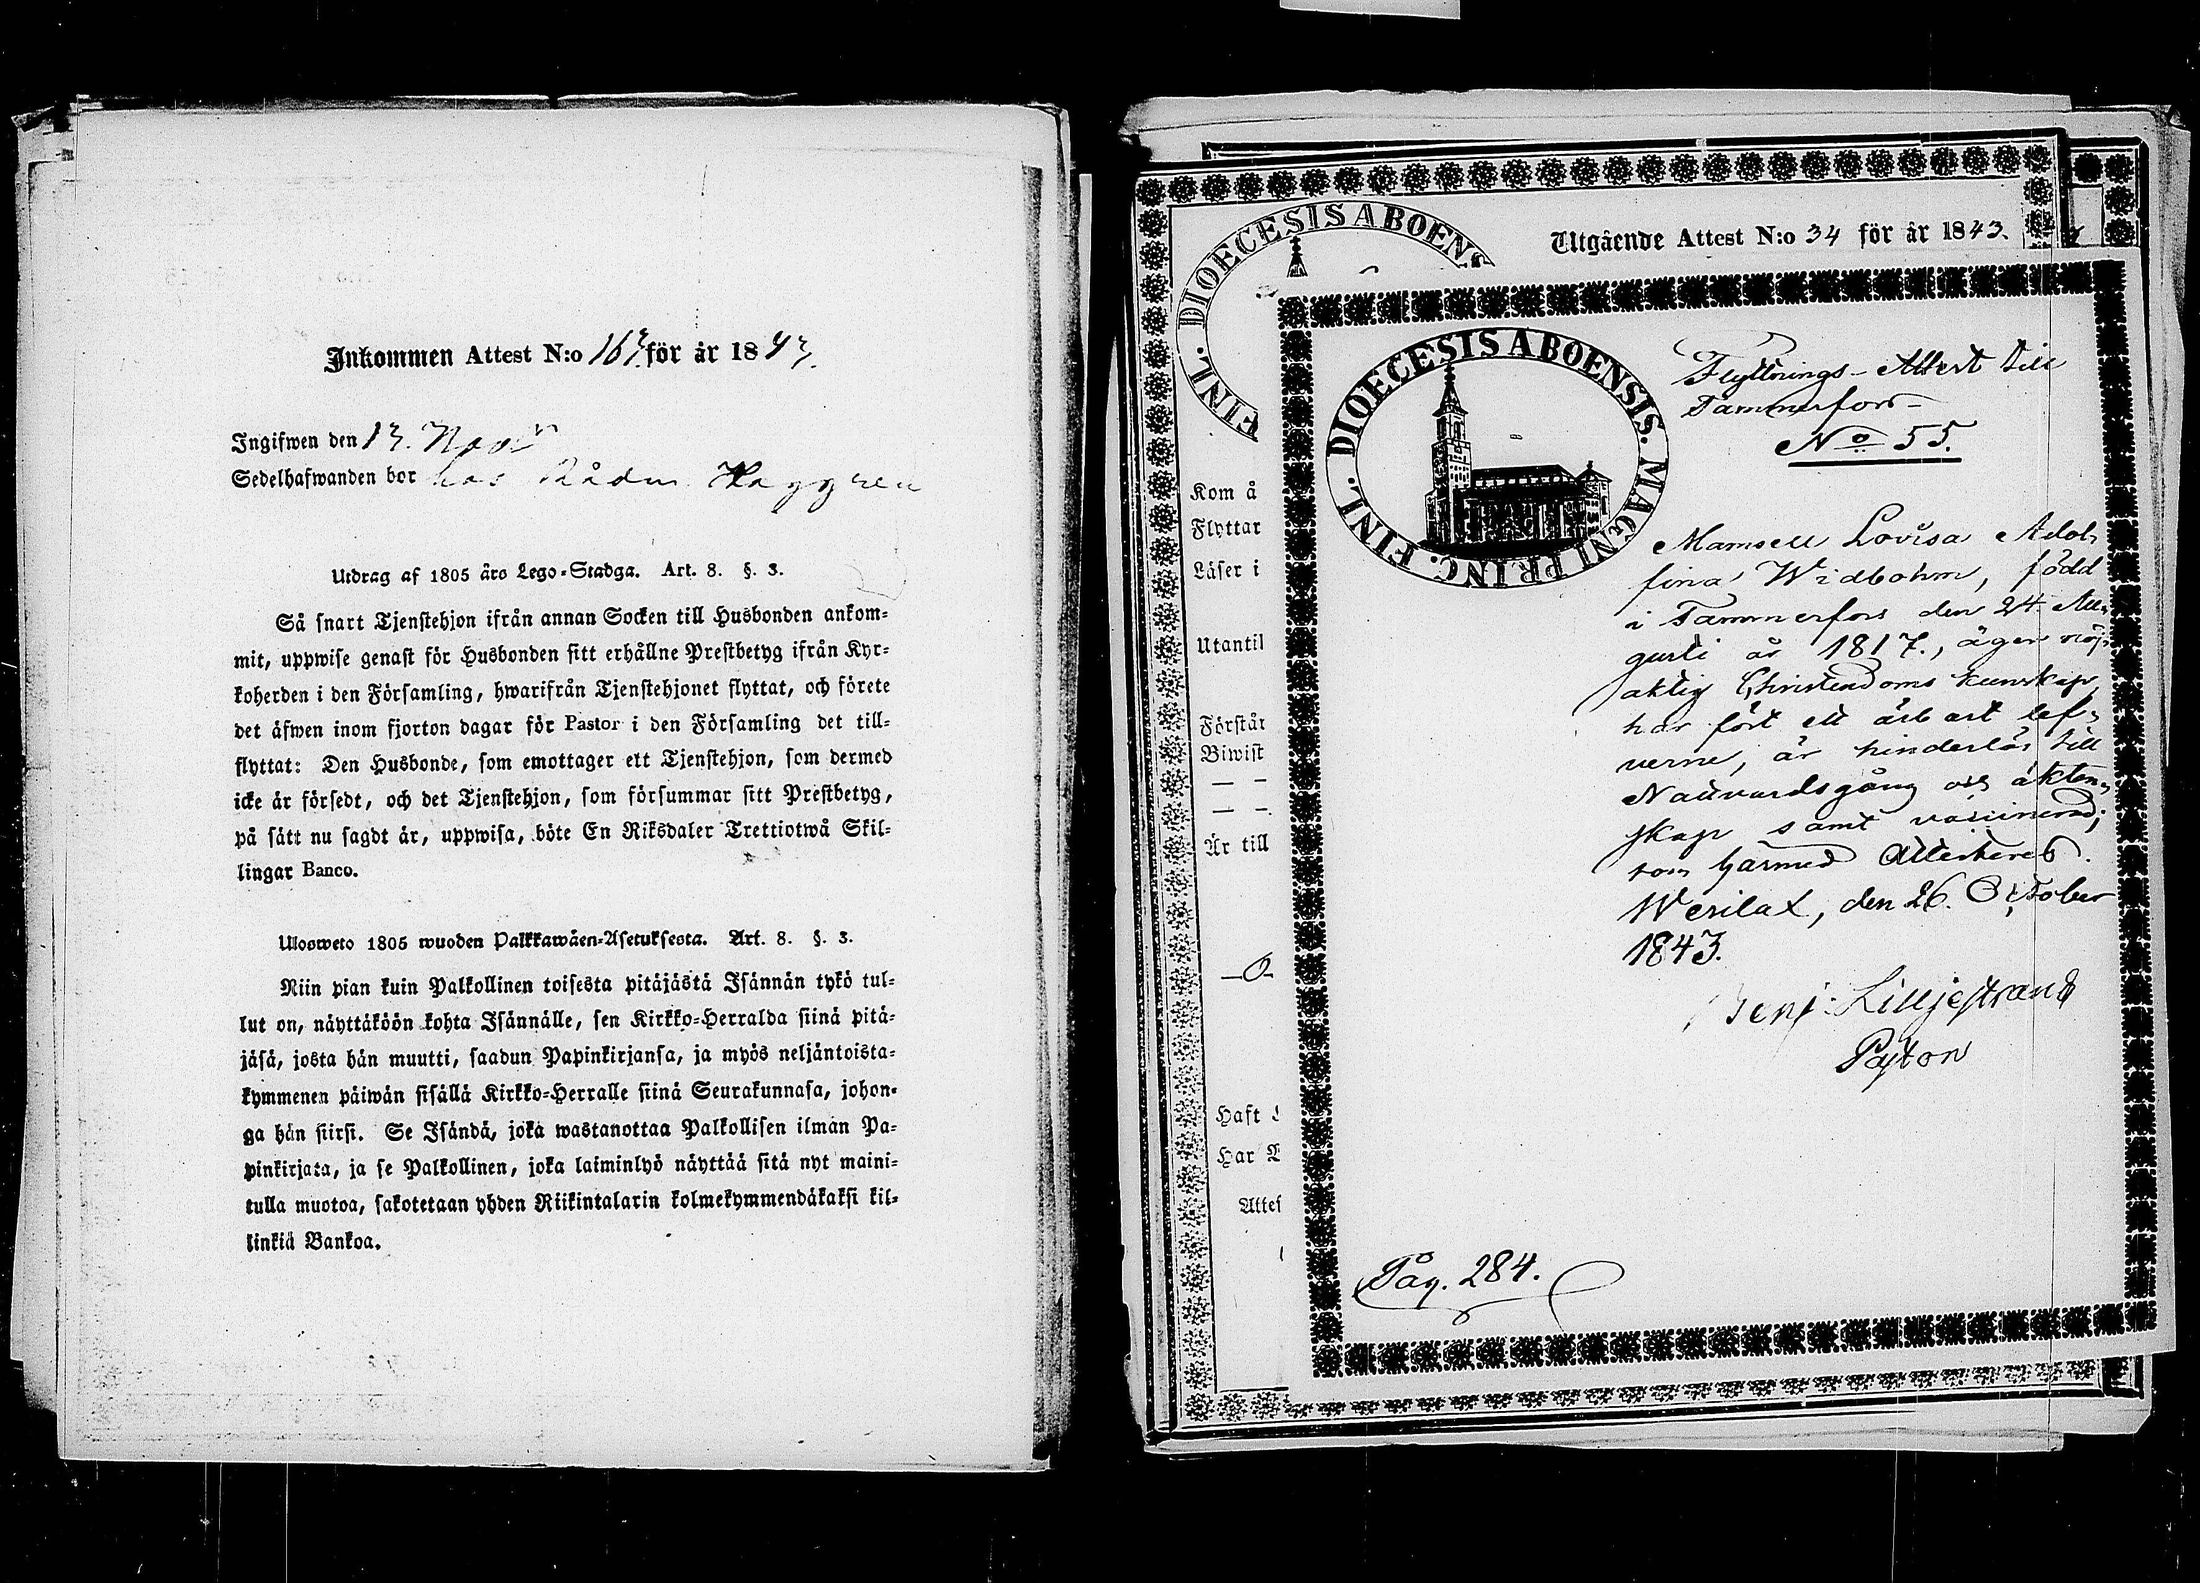 Inkommen Attest N:o 163 för år 1843.
Ingifwen den 13. Nov:r
Sedelhafwanden bor hos Rådm. Haggren
Utdrag af 1805 års Lego-Stadga. Art. 8. §. 3.
Så snart Tjenstehjon ifrån annan Socken till Husbonden ankom-
mit, uppwise genast för Husbonden sitt erhållne Prestbetyg ifrån Kyr-
koherden i den Församling, hwarifrån Tjenstehjonet flyttat, och förete
det äfwen inom fjorton dagar för Pastor i den Församling det till-
flyttat: Den Husbonde, som emottager ett Tjenstehjon, som dermed
icke är försedt, och det Tjenstehjon, som försummar sitt Prestbetyg,
på sätt nu sagdt är, uppwisa, böte En Riksdaler Trettiotwå Skil-
lingar Banco.
Ulosweto 1805 wuoden Palkkawäen-Asetuksesta. Art. 8. §. 3.
Niin pian kuin Palkollinen toisesta pitäjästä Isännän tykö tul-
lut on, näyttäköön kohta Isännälle, sen Kirkko-Herralda siinä pitä-
jäsä, josta hän muutti, saadun Papinkirjansa, ja myös neljäntoista-
kymmenen päiwän sisällä Kirkko-Herralle siinä Seurakunnasa, johon-
ga hän siirsi. Se Isändä, joka wastanottaa Palkollisen ilman Pa-
pinkirjata, ja se Palkollinen, joka laiminlyö näyttää sitä nyt maini-
tulla muotoa, sakotetaan yhden Riikintalarin kolmekymmendäkaksi kil-
linkiä Bankoa.
Utgående Attest N:o 34 för år 1843.
DIOECESIS ABOENS
FINL.
Kom å
Flyttar
Läser i
Utantil
Förstår
Biwist
Är till
Haft
Har
Attes
DIOECESIS ABOENSIS. MAGNI PRINC. FINL.
Flyttnings-Attest till
Tammerfors
No 55.
Mamsell Lovisa Adol-
fina Widbohm, född
i Tammerfors den 24 Au-
gusti år 1817., äger nöj-
aktig Christendoms kunskap,
har fört ett ärbart lef-
verne, är hinderlös till
Nattvardsgång och äkten-
skap samt vaccinerad;
som härmed Attesteras.
Wesilax, den 26. October
1843.
Benj: Lilljestrand
Pastor
Pag. 284.